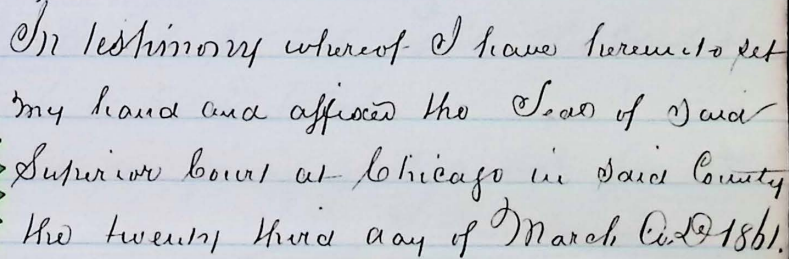 In testimony whereof I have hereunto set
my hand and affixed the Seal of said
Superior Court at Chicago in said County
the twenty third day of March A.D. 1861.